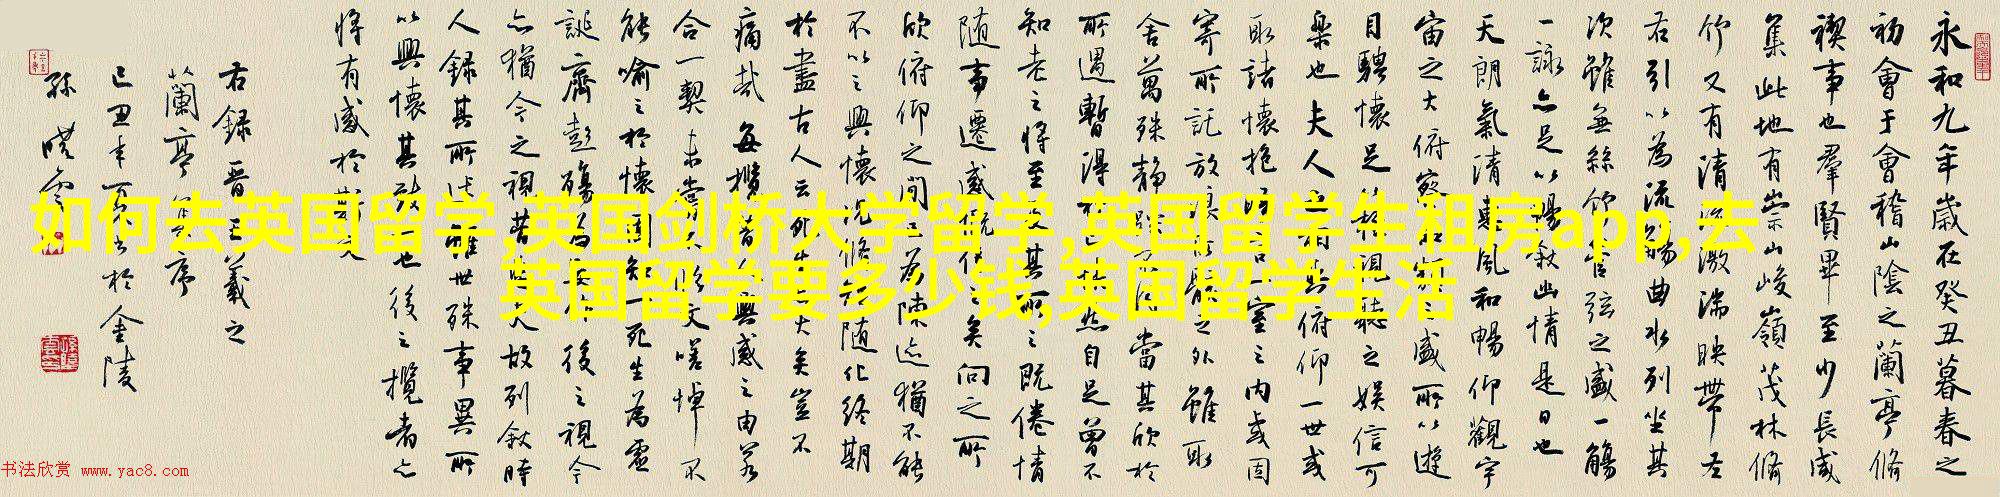 如何去英国留学,英国剑桥大学留学,英国留学生租房app,去
英国留学要多少钱,英国留学生活
永和九年歲在癸丑暮春之
初會于會稽山陰之蘭亭脩
禊事也羣賢畢至少長咸
集此地有崇山峻嶺茂林脩
竹又有清流激湍映帶左
右引以為流觴曲水列坐其
次雖無絲竹管弦之盛一觴
一詠亦足以暢敘幽情是日也
天朗氣清惠風和暢仰觀宇
宙之大俯察品類之盛所以遊
目騁懷足以極視聽之娛信可
樂也夫人之相與俯仰一世或
取諸懷抱晤言一室之內或因
寄所託放浪形骸之外雖取
舍萬殊靜躁不同當其欣於
所遇暫得於己怏然自足曾不
知老之將至及其所之既倦情
隨事遷感慨係之矣向之所
欣俯仰之間已為陳迹猶不能
不以之興懷況脩短隨化終期
於盡古人云死生亦大矣豈不
痛哉每攬昔人興感之由若
合一契未嘗不臨文嗟悼不
能喻之於懷固知一死生為虛
誕齊彭殤為妄作後之視今
亦猶今之視昔悲夫故列敘時
人錄其所述雖世殊事異所
以興懷其致一也後之攬者亦
將有感於斯文
右錄晉王羲之
蘭亭集序
己丑年夏書於金陵
孫曉雲
书法欣赏 www.yac8.com